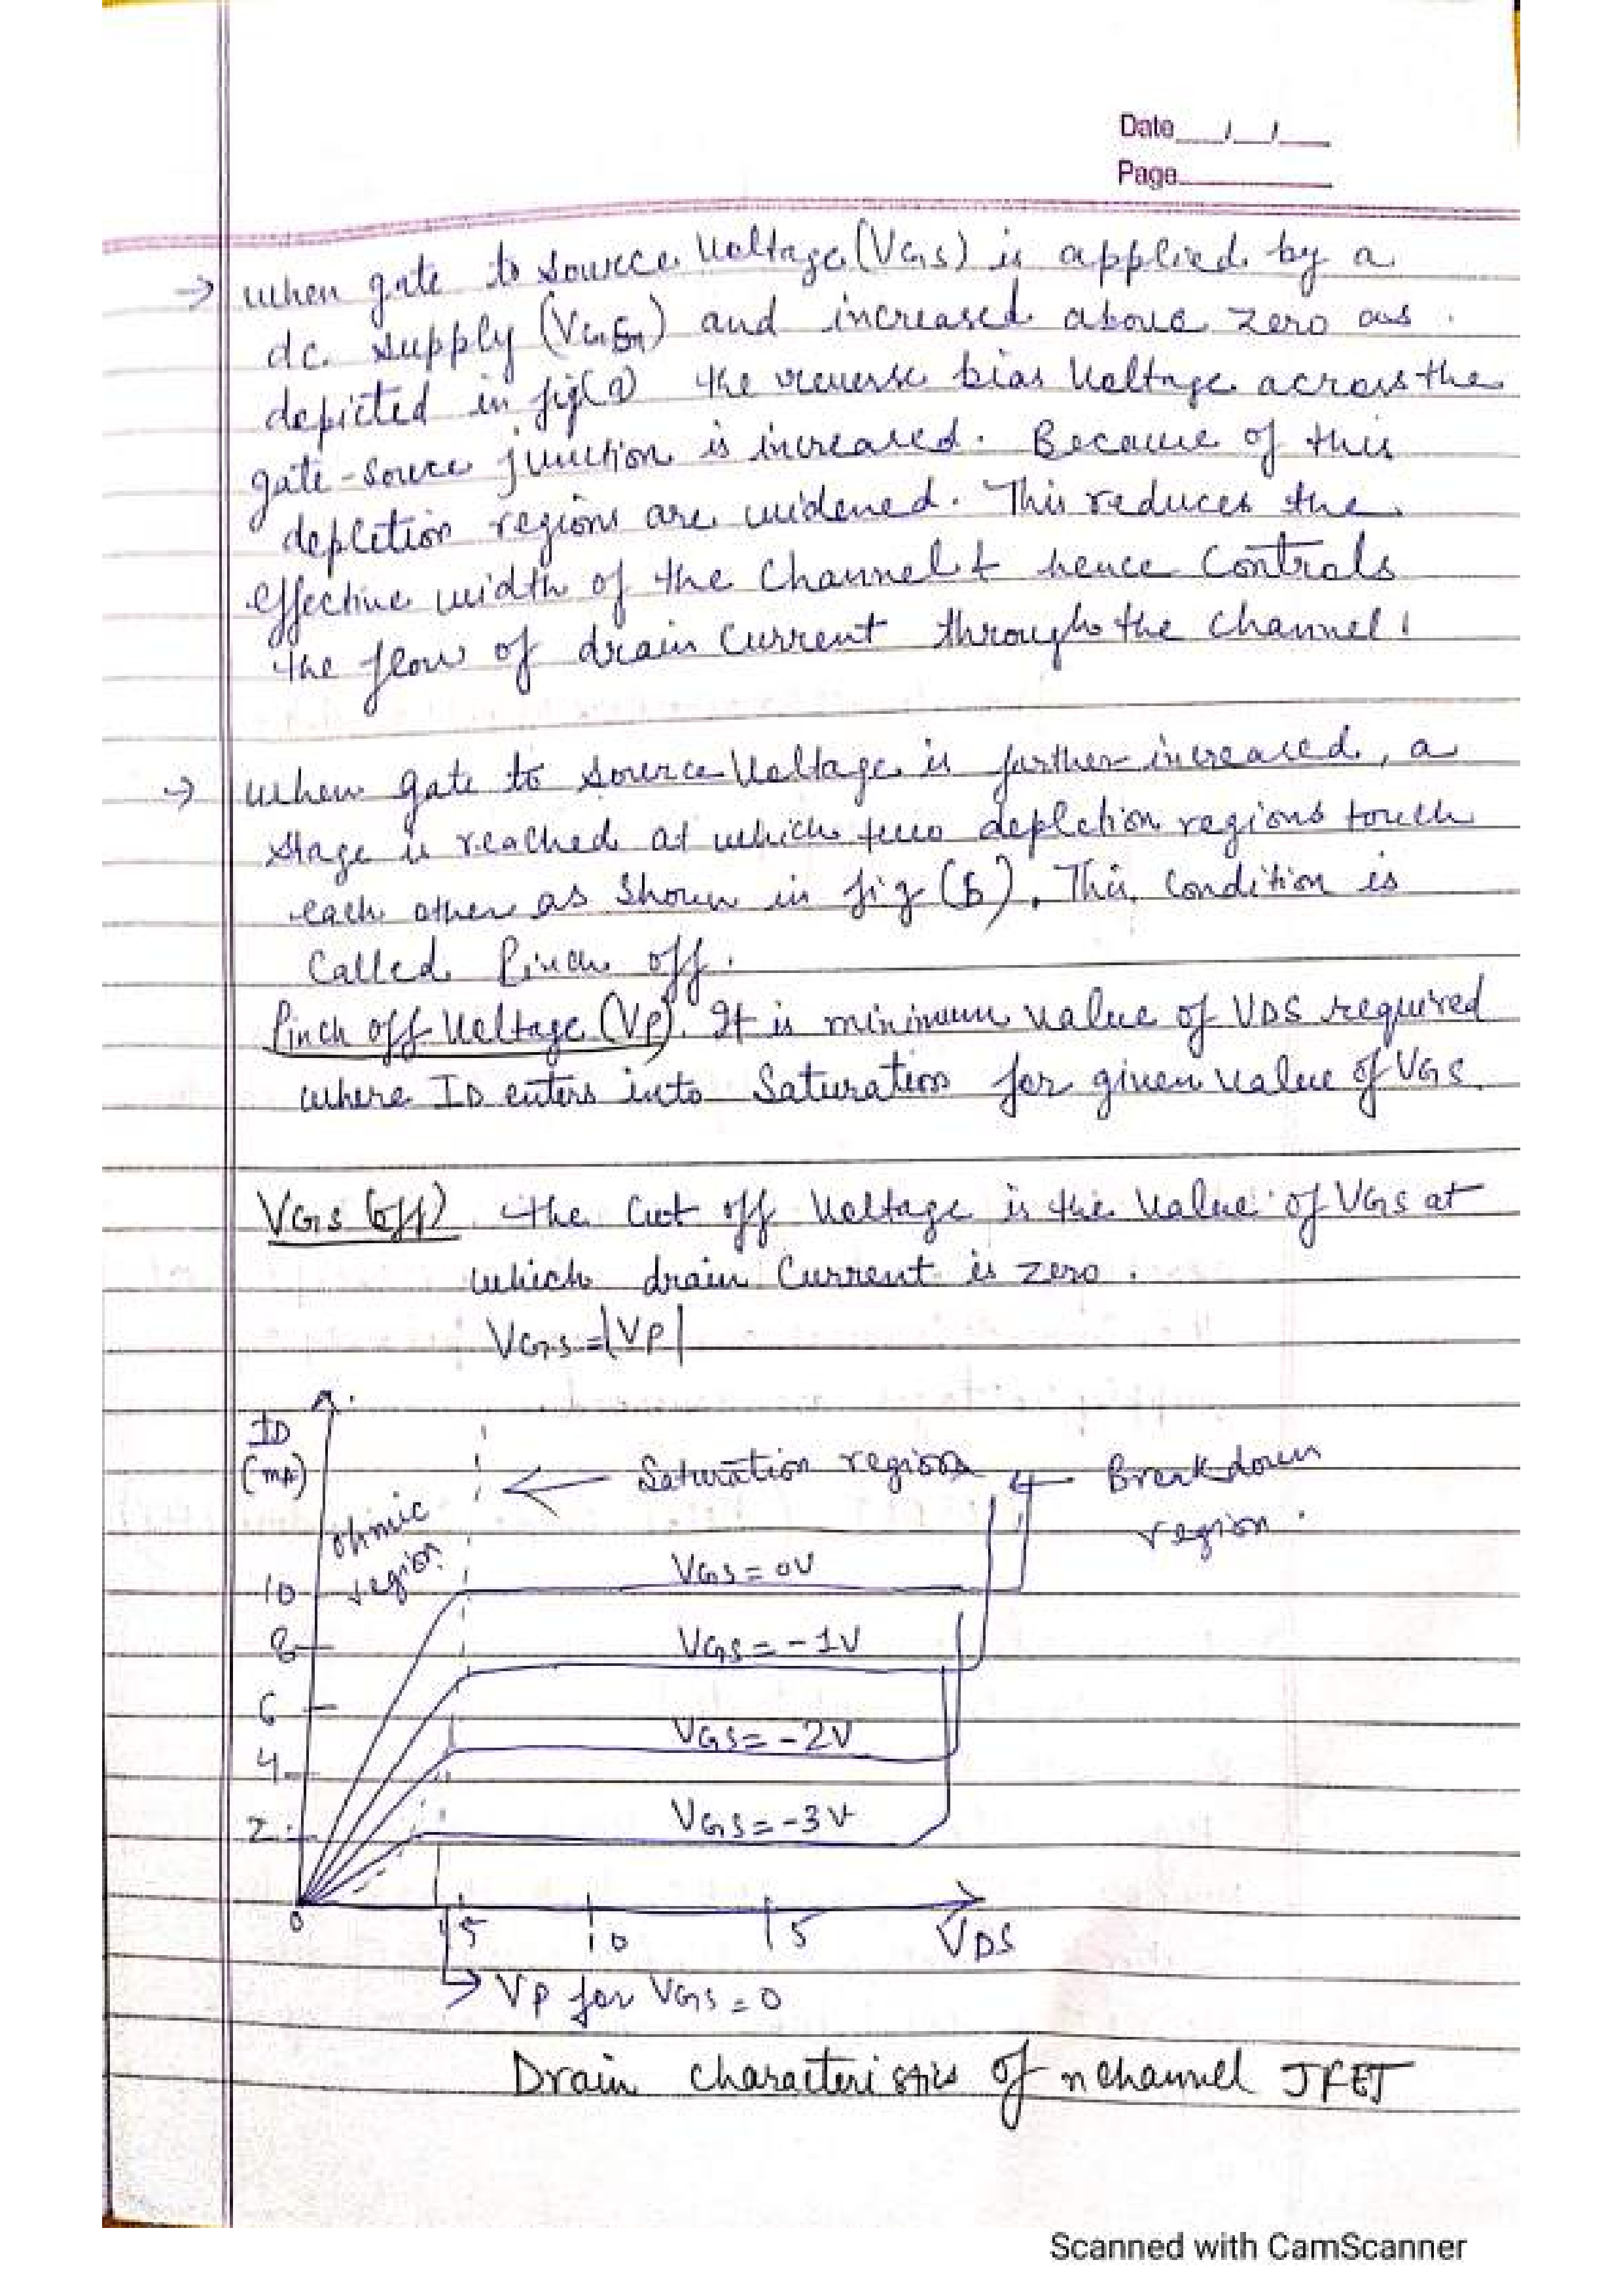 Date
Page
→ when gate to source voltage (VGS) is applied by a
dc. supply (VGG) and increased above zero as
depicted in fig() the reverse bias voltage across the
gate-source junction is increased. Because of this
depletion regions are widened. This reduces the
effective width of the channel & hence controls
the flow of drain current through the channel.
→ when gate to source voltage is further increased, a
stage is reached at which two depletion regions touch
each other as shown in fig (b). This condition is
called Pinch off.
Pinch off Voltage (VP). It is minimum value of VDS required
where ID enters into Saturation for given value of VGS.
VGS (off) the cut off voltage is the value of VGS at
which drain current is zero.
VGS=|VP|
ID
(mA)
ohmic
region
← Saturation region
← Breakdown
region.
10
8
6
4
2
VGS = 0V
VGS = -1V
VGS = -2V
VGS = -3V
0 5 10 15 VDS
→ VP for VGS = 0
Drain characteristics of n channel JFET
Scanned with CamScanner